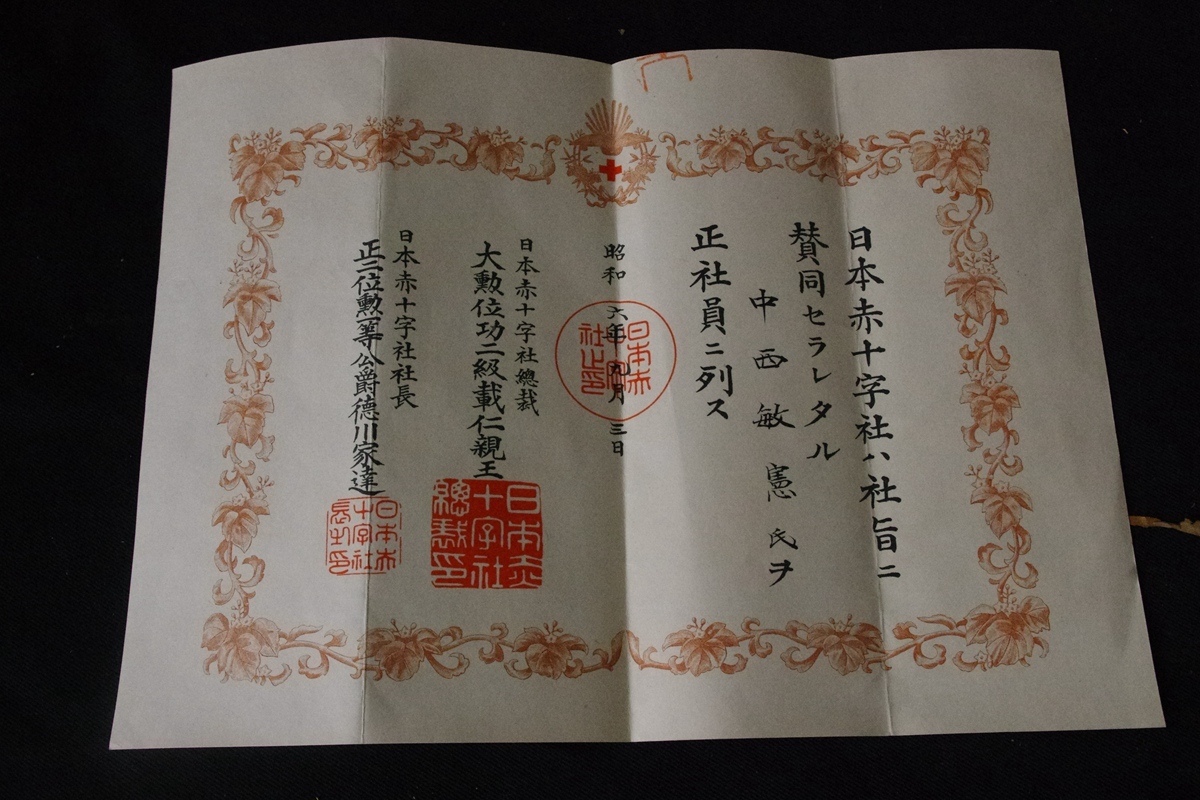 日本赤十字社ハ社旨ニ
賛同セラレタル
中西敏憲氏ヲ
正社員ニ列ス
昭和六年九月三日
日本赤十字社總裁
大勲位功二級載仁親王
日本赤十字社社長
正二位勲一等公爵徳川家達
日本赤十字社總裁印
日本赤十字社長之印